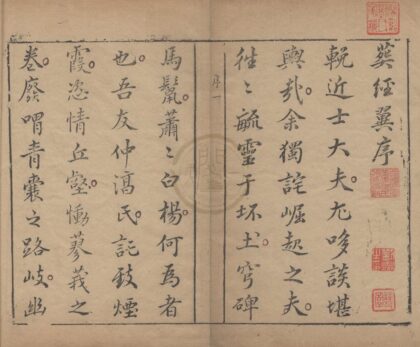 葬經翼序
輓近士大夫尤哆談堪
輿哉余獨詫崛起之夫
徃〻毓靈于坏土穹碑
序一
馬鬣蕭〻白楊何為者
也吾友仲淳氏託致煙
霞恣情丘壑慟蓼莪之
卷廢喟青囊之路岐幽